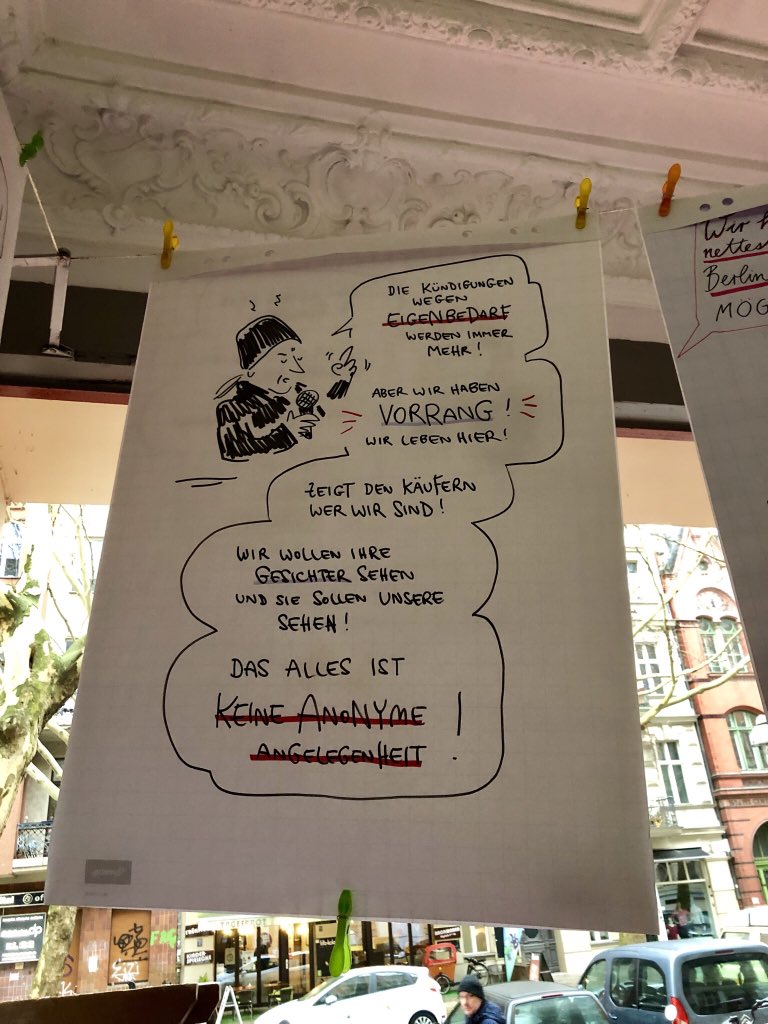 DIE KÜNDIGUNGEN
WEGEN
EIGENBEDARF
WERDEN IMMER
MEHR!
ABER WIR HABEN
VORRANG!
WIR LEBEN HIER!
ZEIGT DEN KÄUFERN
WER WIR SIND!
WIR WOLLEN IHRE
GESICHTER SEHEN
UND SIE SOLLEN UNSERE
SEHEN!
DAS ALLES IST
KEINE ANONYME
ANGELEGENHEIT!
Wir
nettes
Berlin
MÖG
KINDER